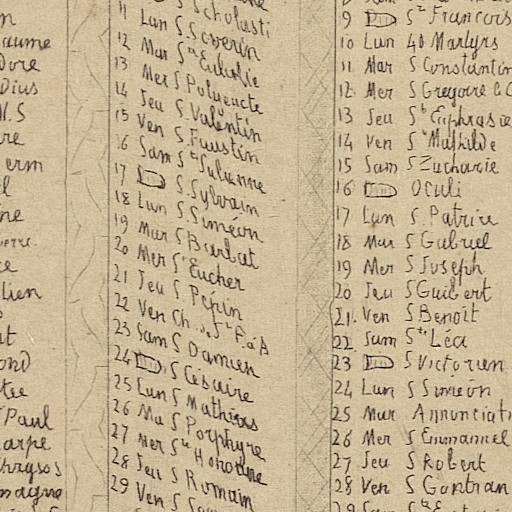 n
aume
Dore
Dius
N.S
re
erm
el
ine
ce
lien
t
ond
tée
Paul
arpe
hrysos
magne
S Scholasti
11 Lun S. Severin
12 Mar Ste Eulalie
13 Mer S Polyeucte
14 Jeu S. Valentin
15 Ven S. Faustin
16 Sam Ste Julienne
17 Dim S. Sylvain
18 Lun S. Siméon
19 Mar S Barbat
20 Mer S Eucher
21 Jeu S. Pepin
22 Ven Ch. de St P. à A
23 Sam S Damien
24 Dim S Césaire
25 Lun S Mathias
26 Ma S Porphyre
27 Mer Ste Honorine
28 Jeu S Romain
29 Ven S
9 Dim Ste Francois
10 Lun 40 Martyrs
11 Mar S Constantin
12 Mer S Gregoire
13 Jeu Ste Euphrasie
14 Ven Ste Mathilde
15 Sam S Zacharie
16 Dim Oculi
17 Lun S. Patrice
18 Mar S Gabriel
19 Mer S Joseph
20 Jeu S Guibert
21. Ven S Benoît
22 Sam Ste Léa
23 Dim S Victorien
24 Lun S Siméon
25 Mar Annonciati
26 Mer S Emmanuel
27 Jeu S Robert
28 Ven S Gontran
29 Sam